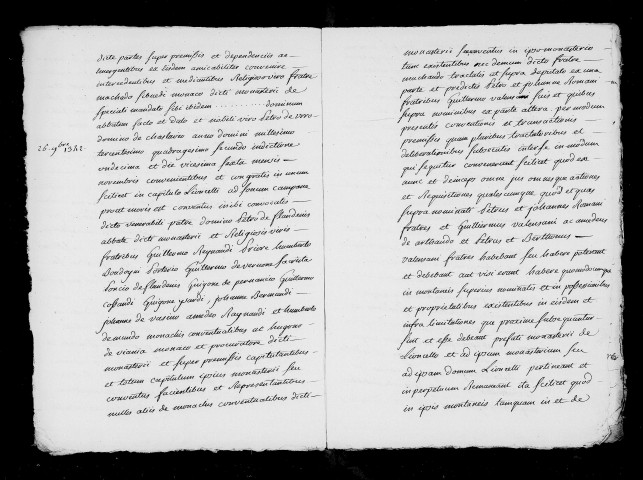 dicte partes super premissis et dependenciis ac
emergentibus ex eisdem amicabiliter convenire
intercedentibus et mediantibus Religioso viro fratre
machado sibaudi monaco dicti monasterii de
speciali mandato sibi ibidem ........... dominum
abbatem facto et dato et nobili viro petro de urro
domino de chastavio anno domini millesimo
26. 9bre 1342. tercentesimo quadragesimo secundo indictione
undecima et die vicesima sexta mensis
novembris convenientibus et congregatis in unum
scilicet in capitulo Lioncelli ad sonum campane
prout moris est conventus inibi convocatis
dicto venerabili patre domino petro de flandenis
abbate dicti monasterii et Religiosis viris
fratribus Guillermo Reynaudi priore humberto
Boudoyni portario Guillermo de vernone sacrista
soncio de flandenis Guigone de pernancio Guillermo
Cossandi Guigone ysardi johanne Bermundi
johanne de vasino amedeo Raynaudi et humberto
de mundo monachis conventualibus ac hugone
de viania monaco et procuratore dicti
monasterii et super premissis capitulantibus
et totum capitulum ipsius monasterii seu
conventus facientibus et Representantibus
nullis aliis de monachis conventualibus dicti
monasterii in ipso monasterio
tunc existentibus nec demum dicto fratre
machaudo tractatis et supra deputato ex una
parte et predictis petro et johanne Romani
fratribus Guillermo valensani suis et quibus
supra nominibus ex parte altera per modum
presentis conventionis et transactionis
premissis quam pluribus tractatibus et
deliberationibus subsecutis inter se in modum
qui sequitur convenerunt scilicet quod ex
nunc et deinceps omne jus omnesque actiones
et Requisitiones qualescumque quod et quas
supra nominati petrus et johannes Romani
fratres et Guillermus valensani ac amedeus
de arthaudo et petrus et Berthonus
valensani fratres habebant seu habere poterant
et debebant aut visi erant habere quomodocumque
in montaneis superius nominatis et in possessionibus
et proprietatibus existentibus in eisdem et
infra limitationes que proxime subsequuntur
sint et esse debeant prefati monasterii de
Lioncello et ad ipsum monasterium seu
ad ipsam domum Lioncelli pertineant et
in perpetuum Remaneant ita scilicet quod
in ipsis montaneis tamquam in et de